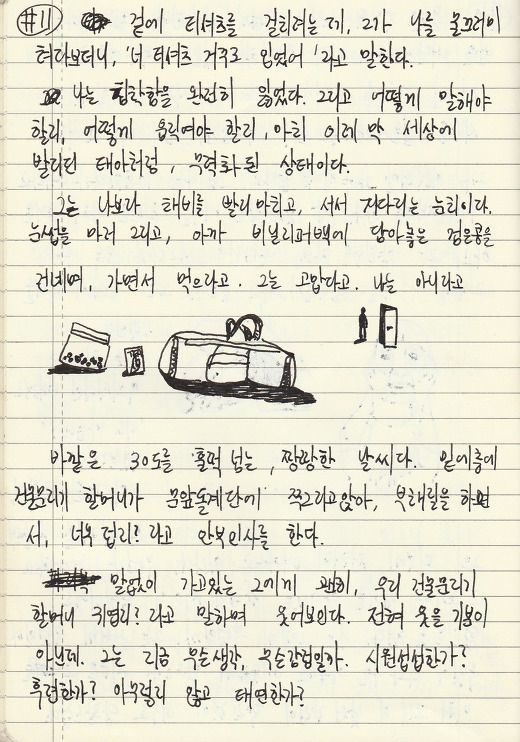 #11 겉에 티셔츠를 걸치려는데, 그가 나를 물끄러미
쳐다보더니, '너 티셔츠 거꾸로 입었어'라고 말한다.
나는 침착함을 완전히 잃었다. 그리고 어떻게 말해야
할지, 어떻게 움직여야 할지, 마치 이제 막 세상에
발디딘 태아처럼, 무력화된 상태이다.
그는 나보다 채비를 빨리 마치고, 서서 기다리는 눈치이다.
눈썹을 마저 그리고, 아까 비닐지퍼백에 담아놓은 검은콩을
건네며, 가면서 먹으라고. 그는 고맙다고. 나는 아니라고
바깥은 30도를 훌쩍 넘는, 쨍쨍한 날씨다. 밑에층에
건물문지기 할머니가 문앞돌계단에 쪼그리고앉아, 부채질을 하면
서, 너무 덥지? 라고 안부인사를 한다.
말없이 가고있는 그에게 괜히, 우리 건물문지기
할머니 귀엽지? 라고 말하며 웃어보인다. 전혀 웃을 기분이
아닌데. 그는 지금 무슨생각, 무슨감정일까. 시원섭섭한가?
후련한가? 아무렇지 않고 태연한가?